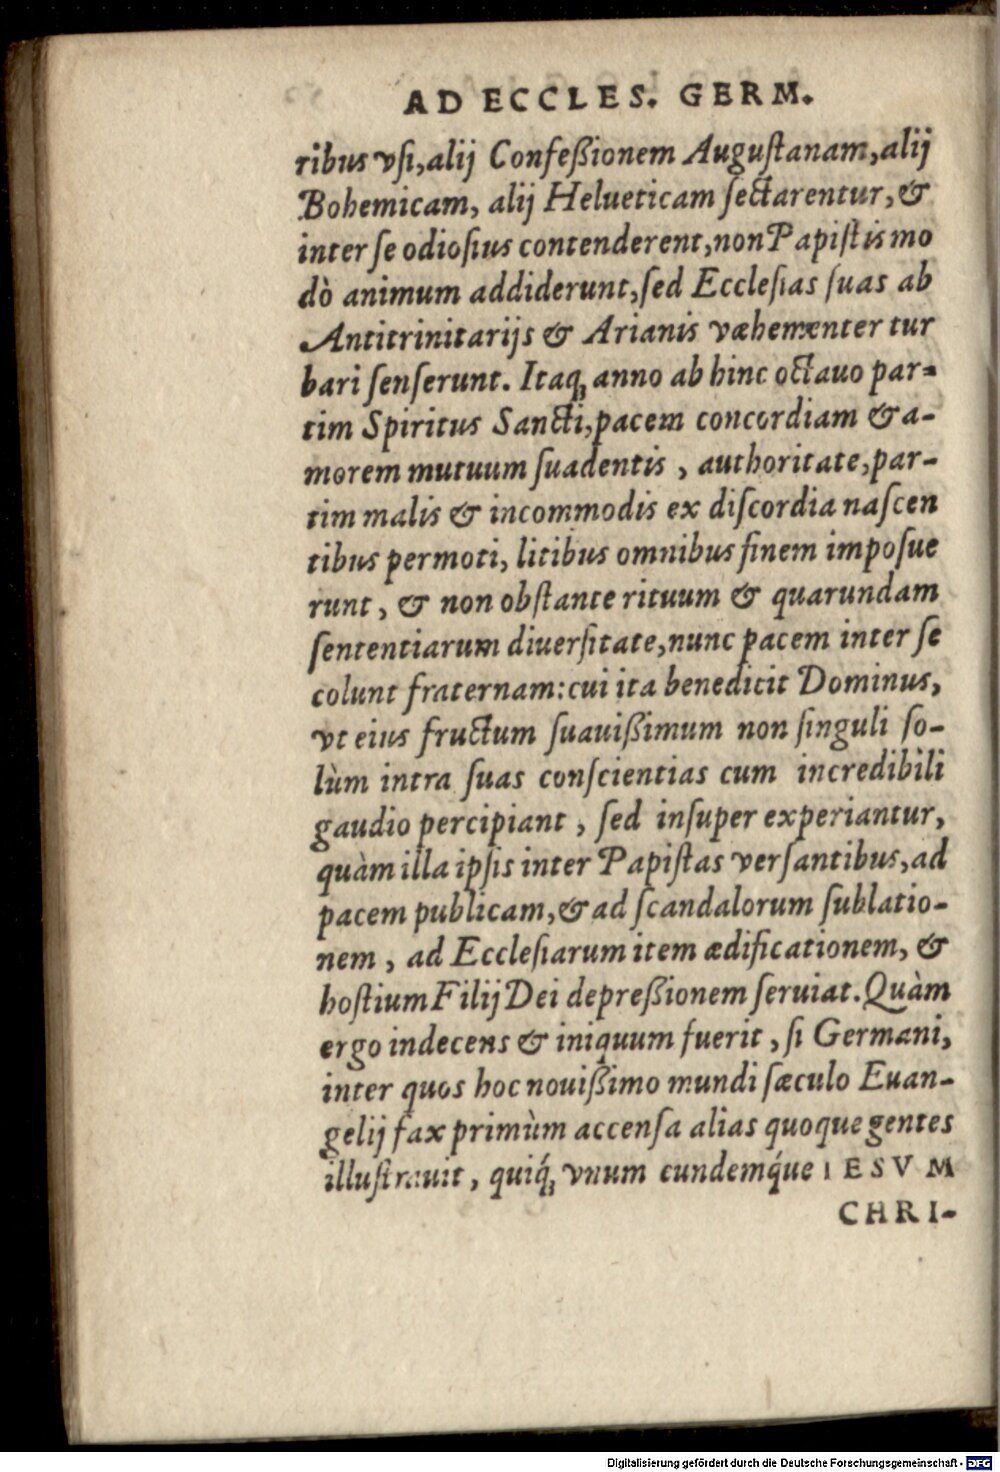 AD ECCLES. GERM.
ribus vsi, alij Confeßionem Augustanam, alij
Bohemicam, alij Helueticam sectarentur, &
inter se odiosius contenderent, non Papistis mo
dò animum addiderunt, sed Ecclesias suas ab
Antitrinitarijs & Arianis væhementer tur
bari senserunt. Itaq; anno ab hinc octauo par-
tim Spiritus Sancti, pacem concordiam & a-
morem mutuum suadentis, authoritate, par-
tim malis & incommodis ex discordia nascen
tibus permoti, litibus omnibus finem imposue
runt, & non obstante rituum & quarundam
sententiarum diuersitate, nunc pacem inter se
colunt fraternam: cui ita benedicit Dominus,
vt eius fructum suauißimum non singuli so-
lùm intra suas conscientias cum incredibili
gaudio percipiant, sed insuper experiantur,
quàm illa ipsis inter Papistas versantibus, ad
pacem publicam, & ad scandalorum sublatio-
nem, ad Ecclesiarum item ædificationem, &
hostium Filij Dei depreßionem seruiat. Quàm
ergo indecens & iniquum fuerit, si Germani,
inter quos hoc nouißimo mundi sæculo Euan-
gelij fax primùm accensa alias quoque gentes
illustrauit, quiq́; vnum eundemq́ue IESVM
CHRI-
Digitalisierung gefördert durch die Deutsche Forschungsgemeinschaft - DFG